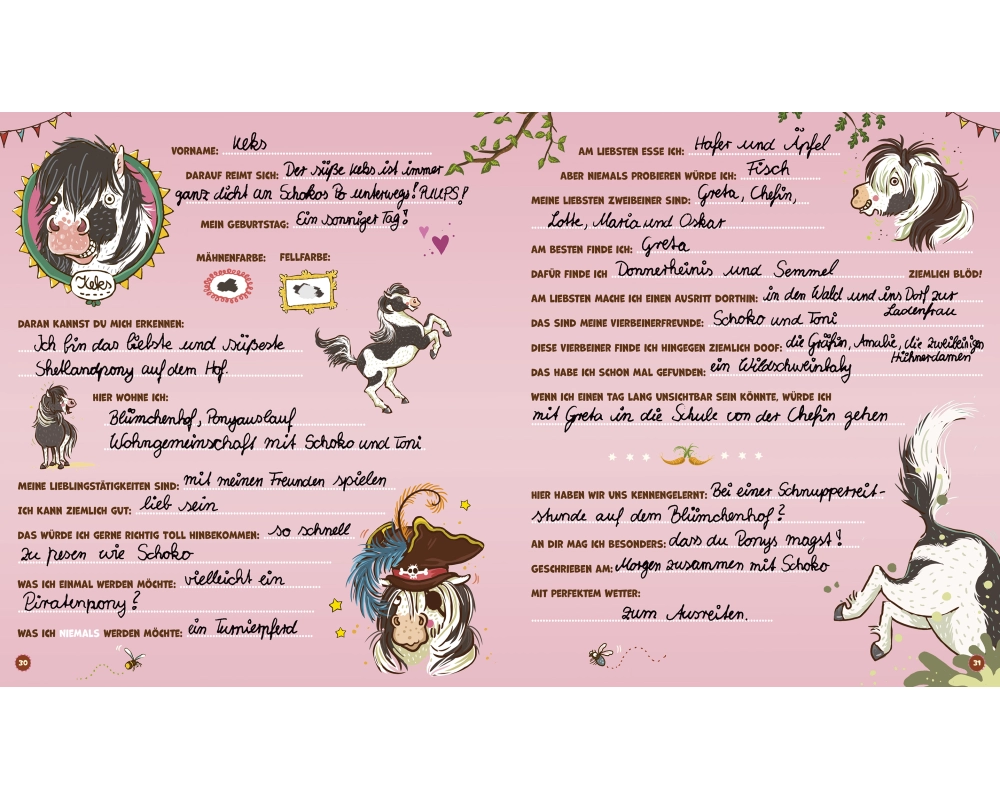 VORNAME: Keks
DARAUF REIMT SICH: Der süße Keks ist immer
ganz dicht an Schokos Po unterwegs! PUUPS!
MEIN GEBURTSTAG: Ein sonniger Tag!
MÄHNENFARBE: FELLFARBE:
Keks
DARAN KANNST DU MICH ERKENNEN:
Ich bin das liebste und süßeste
Shetlandpony auf dem Hof.
HIER WOHNE ICH:
Blümchenhof, Ponyauslauf
Wohngemeinschaft mit Schoko und Toni
MEINE LIEBLINGSTÄTIGKEITEN SIND: mit meinen Freunden spielen
ICH KANN ZIEMLICH GUT: lieb sein
DAS WÜRDE ICH GERNE RICHTIG TOLL HINBEKOMMEN: so schnell
zu pesen wie Schoko
WAS ICH EINMAL WERDEN MÖCHTE: vielleicht ein
Piratenpony?
WAS ICH NIEMALS WERDEN MÖCHTE: ein Turnierpferd
30
AM LIEBSTEN ESSE ICH: Hafer und Äpfel
ABER NIEMALS PROBIEREN WÜRDE ICH: Fisch
MEINE LIEBSTEN ZWEIBEINER SIND: Greta, Chefin,
Lotte, Maria und Oskar
AM BESTEN FINDE ICH: Greta
DAFÜR FINDE ICH Donnerheinis und Semmel ZIEMLICH BLÖD!
AM LIEBSTEN MACHE ICH EINEN AUSRITT DORTHIN: in den Wald und ins Dorf zur
Ladenfrau
DAS SIND MEINE VIERBEINERFREUNDE: Schoko und Toni
DIESE VIERBEINER FINDE ICH HINGEGEN ZIEMLICH DOOF: die Gräfin, Amalie, die zweibeinigen
Hühnerdamen
DAS HABE ICH SCHON MAL GEFUNDEN: ein Wildschweinbaby
WENN ICH EINEN TAG LANG UNSICHTBAR SEIN KÖNNTE, WÜRDE ICH
mit Greta in die Schule von der Chefin gehen
HIER HABEN WIR UNS KENNENGELERNT: Bei einer Schnupperreit-
stunde auf dem Blümchenhof?
AN DIR MAG ICH BESONDERS: dass du Ponys magst!
GESCHRIEBEN AM: Morgen zusammen mit Schoko
MIT PERFEKTEM WETTER:
zum Ausreiten.
31